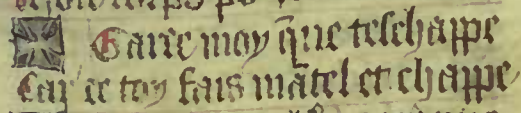 Garre moy q̃ue teschappe
Car ce toy fais mãtel et chappe